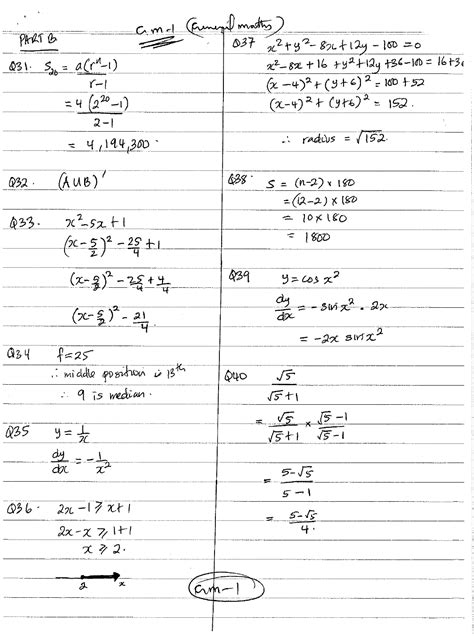 G.M-1 (General maths)
PART B
Q31. S₂₀ = a(rⁿ-1)
r-1
= 4(2²⁰-1)
2-1
= 4,194,300
Q32. (AUB)'
Q33. x²-5x+1
(x-5/2)² - 25/4 + 1
(x-5/2)² - 25/4 + 4/4
(x-5/2)² - 21/4
Q34 f=25
∴ middle position is 13th
∴ 9 is median.
Q35 y = 1/x
dy/dx = -1/x²
Q36. 2x-1 ⩾ x+1
2x-x ⩾ 1+1
x ⩾ 2.
2 x
Q37 x²+y²-8x+12y-100=0
x²-8x+16+y²+12y+36-100=16+36
(x-4)²+(y+6)²=100+52
(x-4)²+(y+6)²=152.
∴ radius = √152
Q38. S = (n-2)×180
=(12-2)×180
= 10×180
= 1800
Q39 y=cos x²
dy/dx = -sin x² · 2x
= -2x sin x²
Q40 √5
√5+1
= √5/√5+1 × √5-1/√5-1
= 5-√5
5-1
= 5-√5
4.
G.m-1